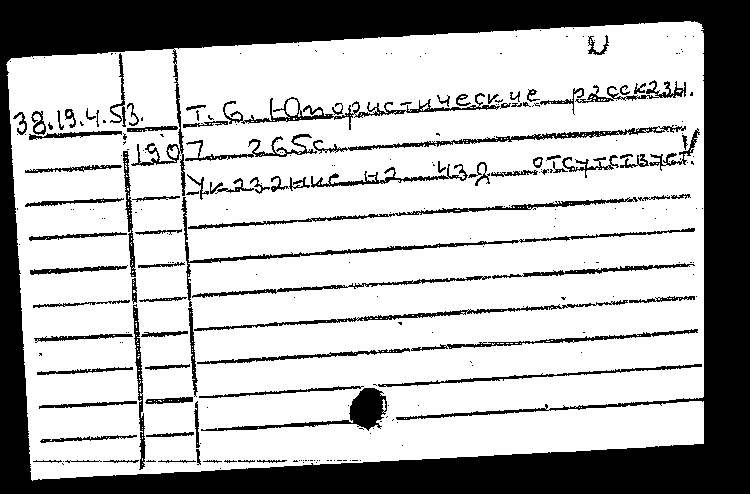 38.19.4.53. Т. 6. Юмористические рассказы.
1907 265с.
Указание на изд отсутствует.